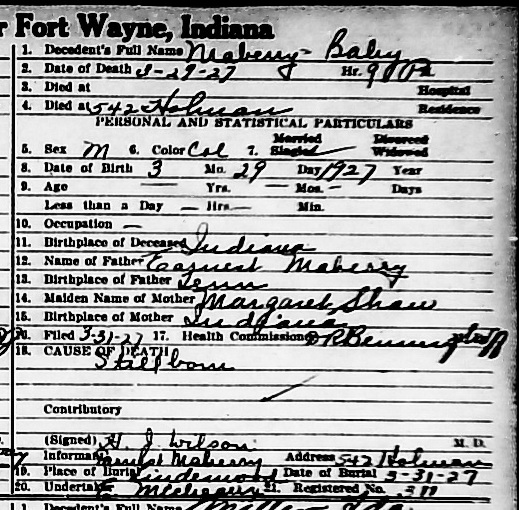 r Fort Wayne, Indiana
1. Decedent's Full Name Maberry - Baby
2. Date of Death 3-29-27 Hr. 9 P.M.
3. Died at Hospital
4. Died at 542 Holman Residence
PERSONAL AND STATISTICAL PARTICULARS
Married Divorced
5. Sex M 6. Color Col 7. Single Widowed
8. Date of Birth 3 Mo. 29 Day 1927 Year
9. Age — Yrs. — Mos. — Days
Less than a Day — Hrs. — Min.
10. Occupation —
11. Birthplace of Deceased Indiana
12. Name of Father Earnest Maberry
13. Birthplace of Father Tenn
14. Maiden Name of Mother Margaret Shaw
15. Birthplace of Mother Indiana
16. Filed 3-31-27 17. Health Commissioner
18. CAUSE OF DEATH
Stillborn
Contributory
(Signed) H. J. Wilson M. D.
Informant Earnest Maberry Address 542 Holman
19. Place of Burial Lindenwood Date of Burial 3-31-27
20. Undertaker 21. Registered No.
1. Decedent's Full Name